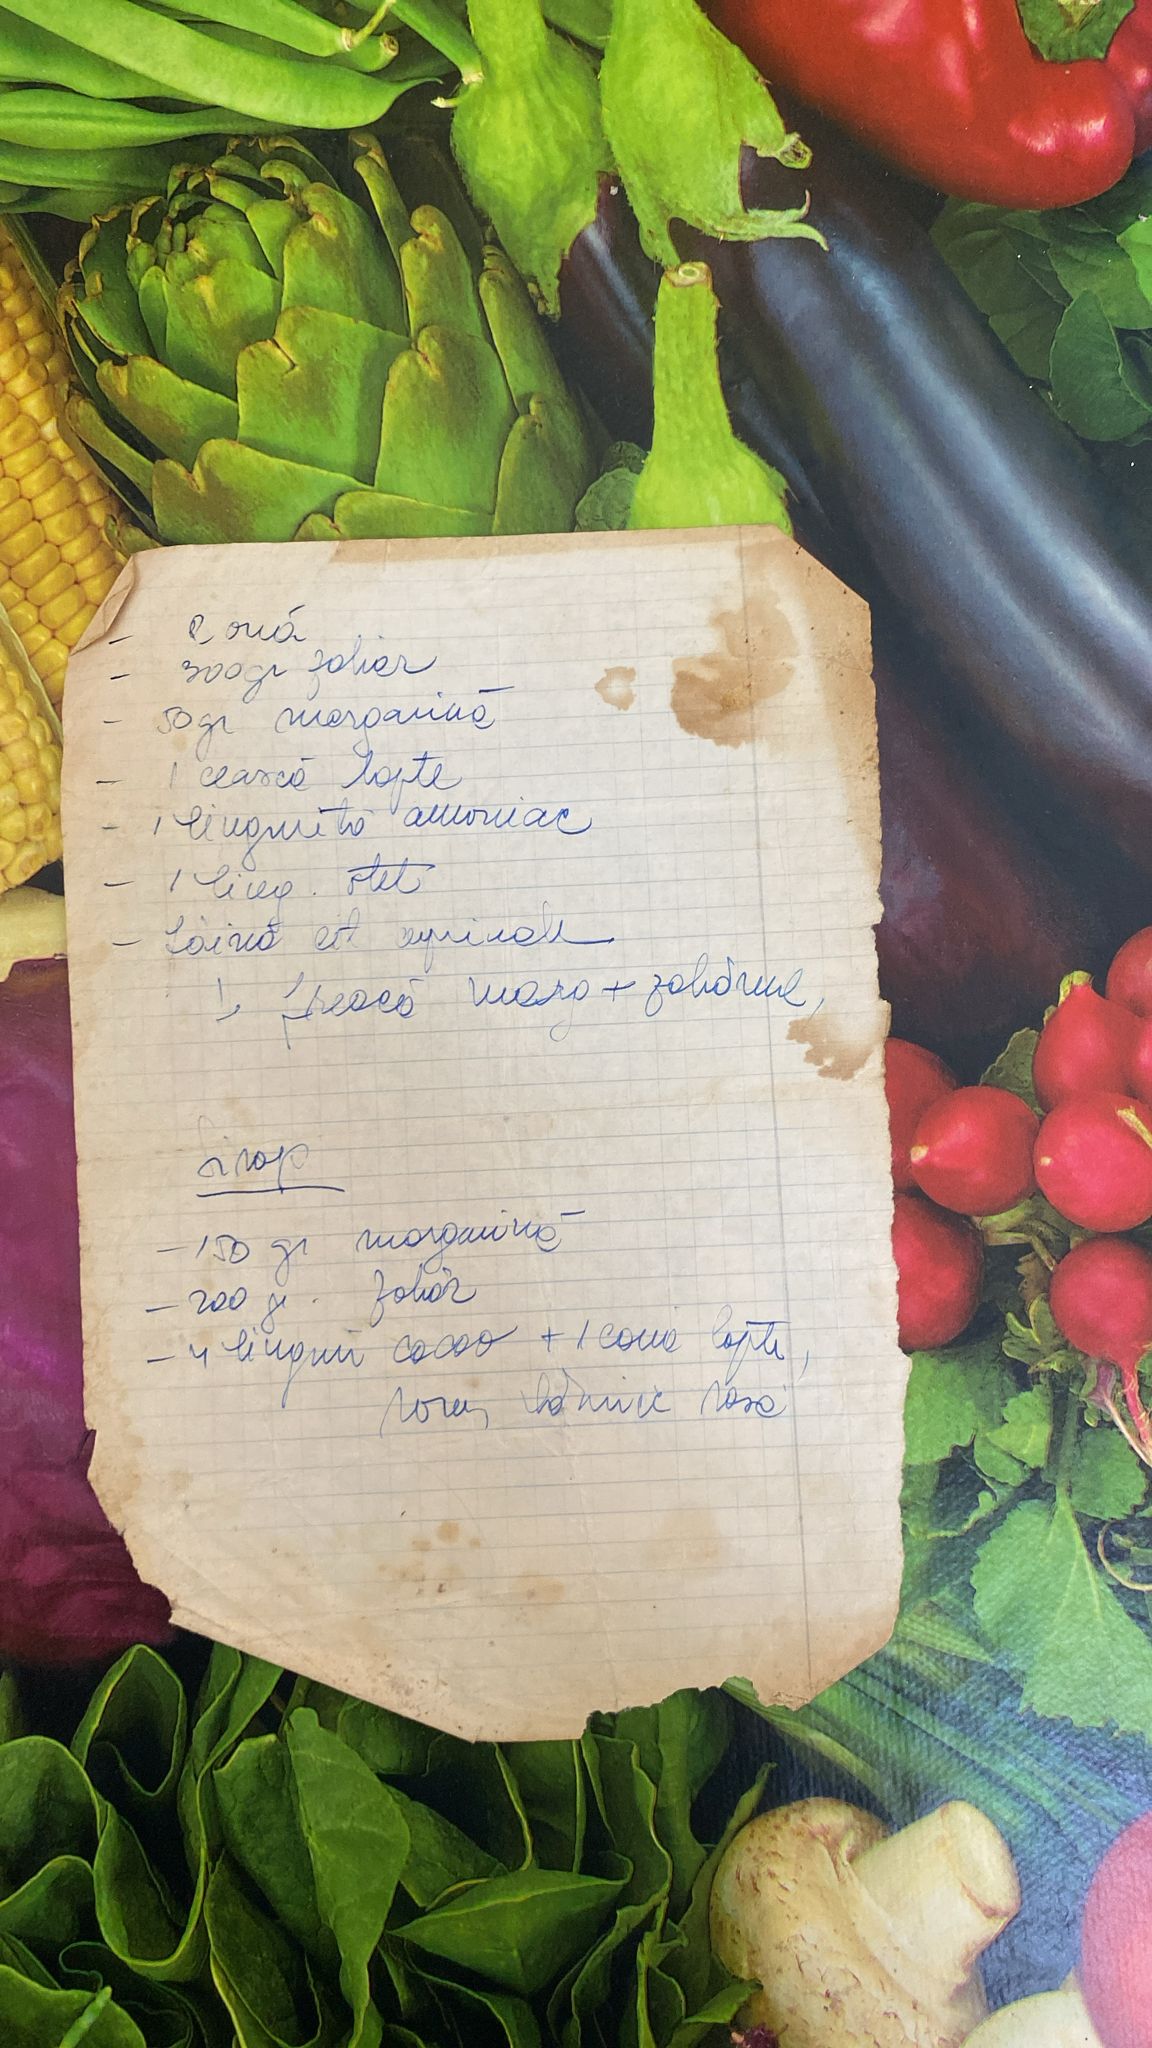 - 2 ouă
- 300 gr zahăr
- 50 gr margarină
- 1 ceașcă lapte
- 1 linguriță amoniac
- 1 ling. oțet
- Făină cât cuprinde
1, freacă marg + zahărul,
Sirop
- 150 gr margarină
- 200 gr. zahăr
- 4 linguri cacao + 1 cană lapte,
rom,